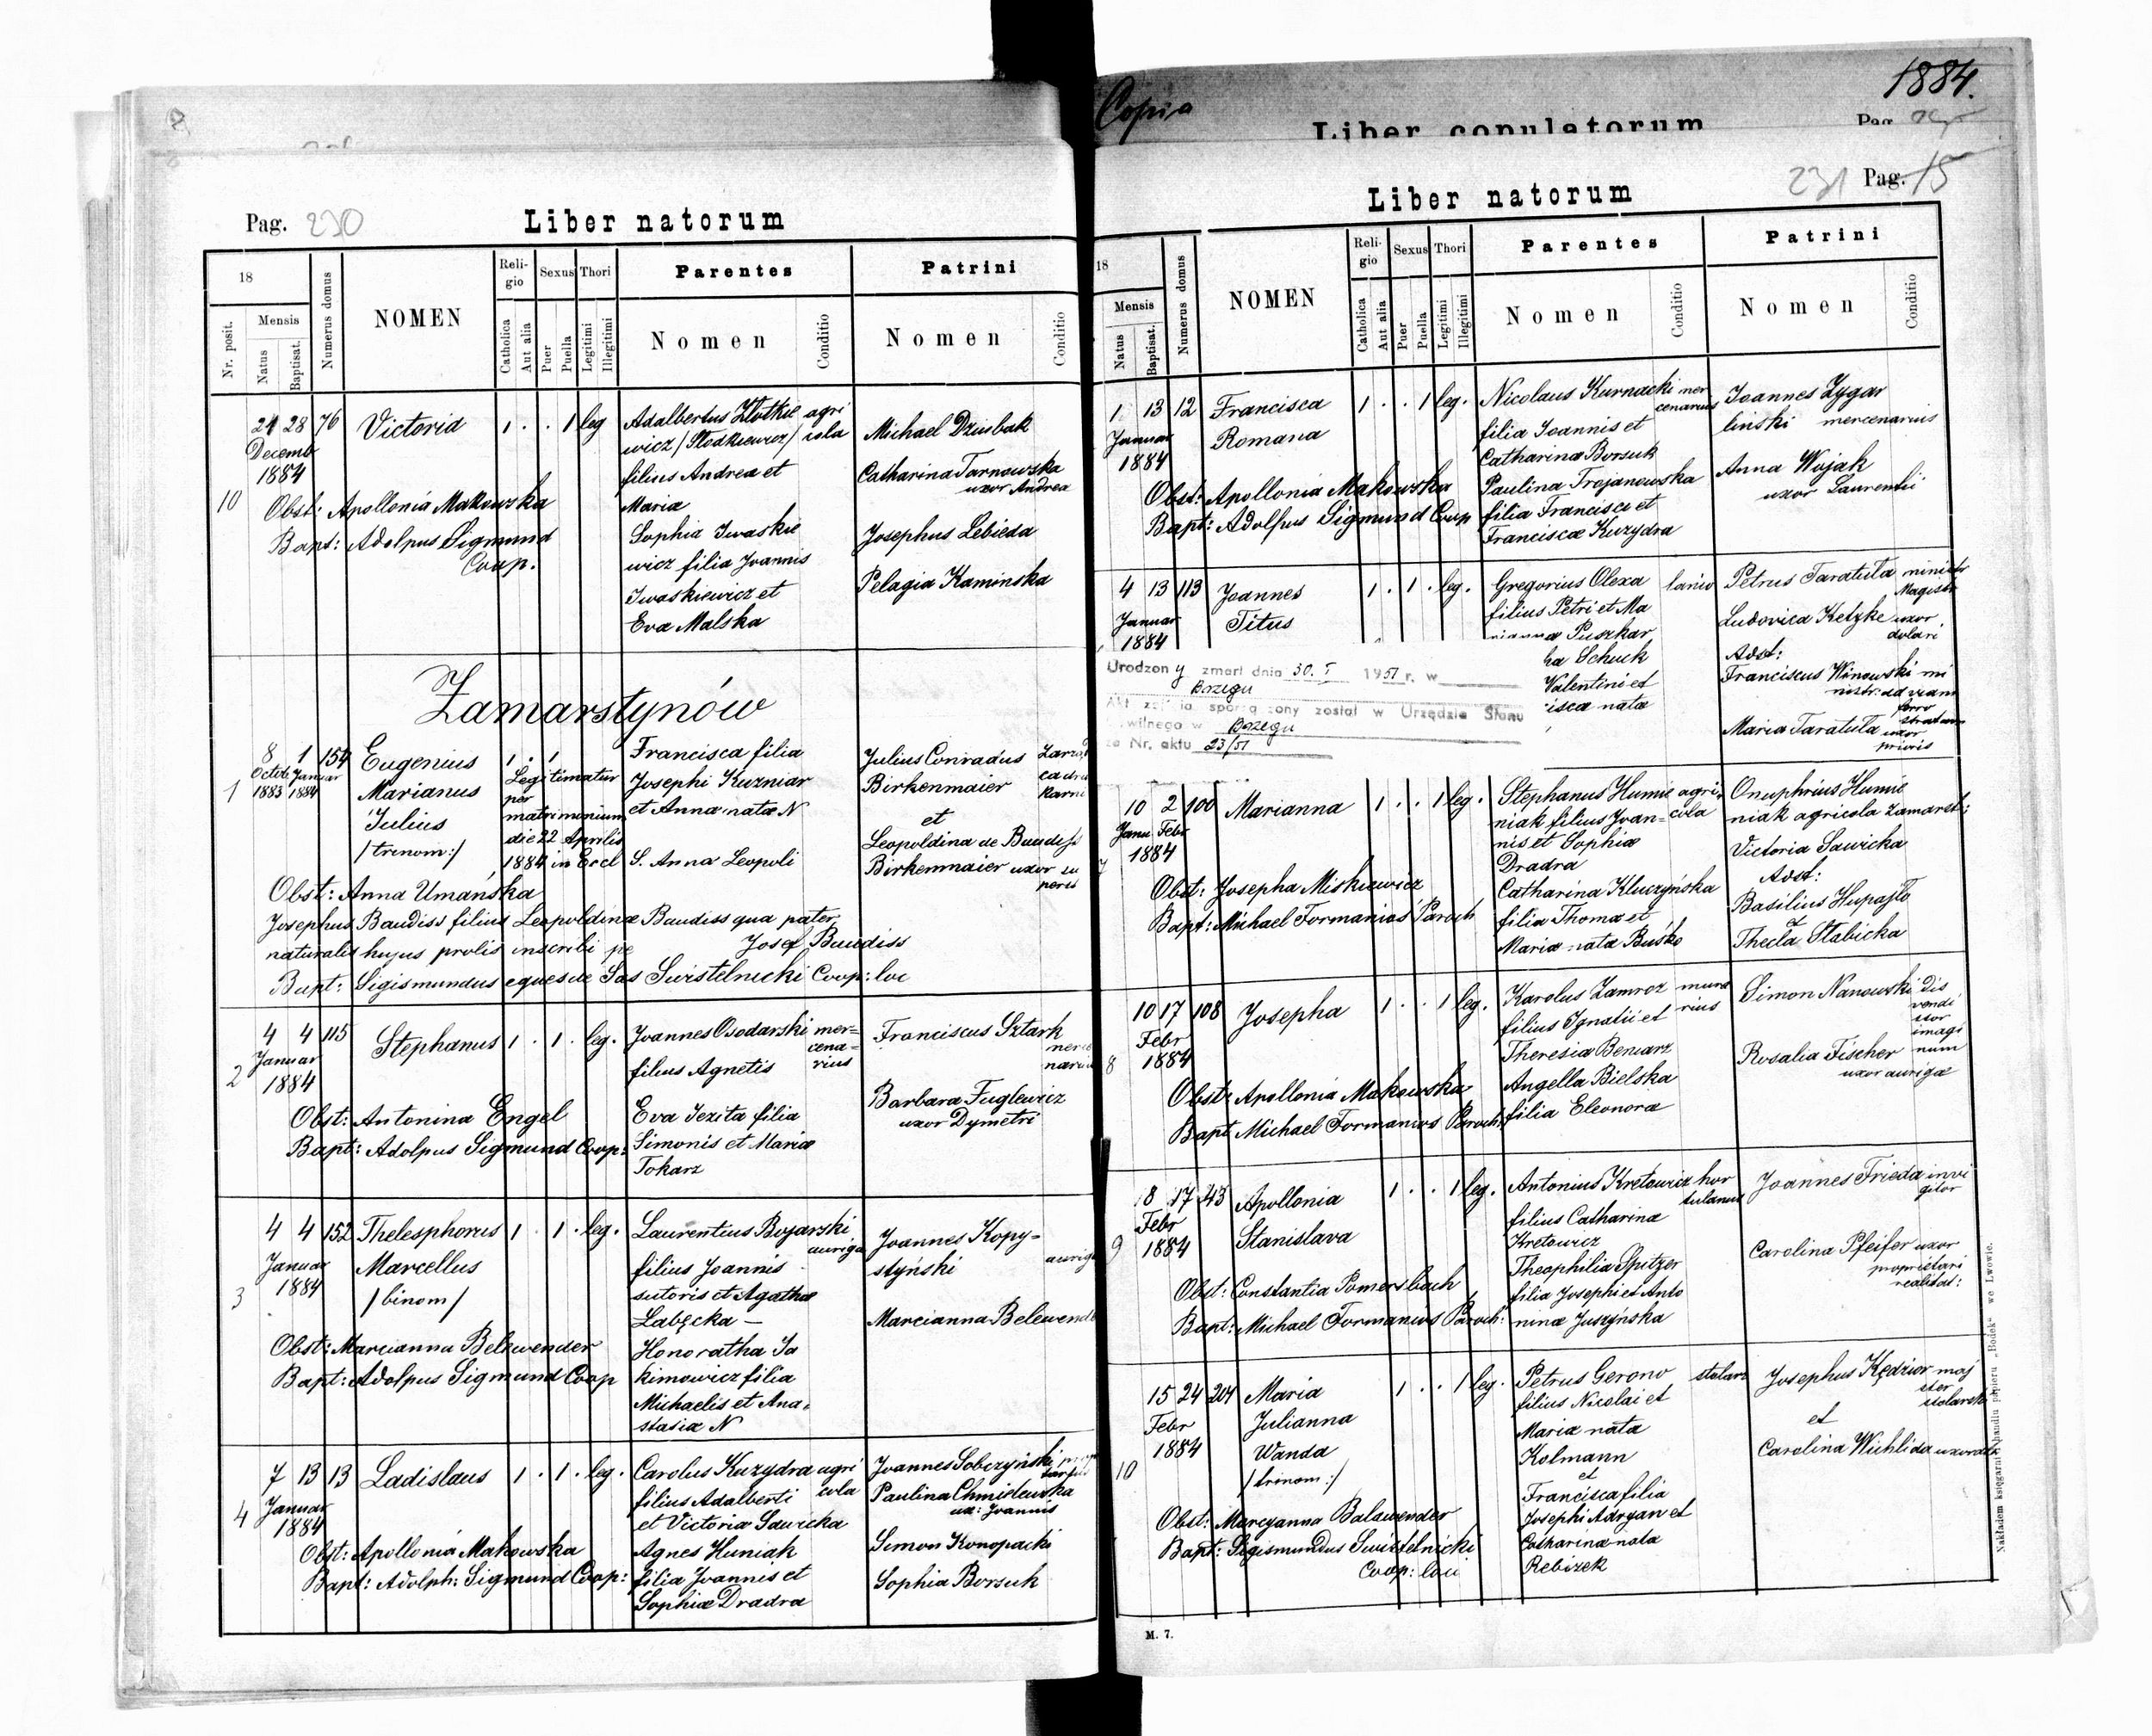 Copia
1884.
Liber copulatorum
Pag.
Pag. 230
Liber natorum
18
Nr. posit.
Mensis
Natus
Baptisat.
Numerus domus
NOMEN
Religio
Catholica
Aut alia
Sexus
Puer
Puella
Thori
Legitimi
Illegitimi
Parentes
Nomen
Conditio
Patrini
Nomen
Conditio
10
21 28 76 Victoria 1 . . 1 leg
Decemb
1884
Obst: Apollonia Makowska
Bapt: Adolpus Sigmund
Coop.
Adalbertus Zlotkie agri
wicz /Slodkiewicz/ cola
filius Andrea et
Maria
Sophia Iwaskie
wicz filia Joannis
Iwaskiewicz et
Eva Malska
Michael Dziusbak
Catharina Tarnowska
uxor Andrea
Josephus Lebieda
Pelagia Kaminska
Zamarstynów
1
8 1 154 Eugenius 1 . 1
Octob Januar
1883 1884
Marianus
Julius
/trinom:/
Legitimatur
per
matrimonium
die 22 Aprilis
1884 in Eccl S. Anna Leopoli
Francisca filia
Josephi Kuzniar
et Anna nata N
Julius Conradus
Birkenmaier
et
Leopoldina de Baudiss
Birkenmaier uxor su
peris
Obst: Anna Umańska
Josephus Baudiss filius Leopoldinæ Baudiss qua pater
naturalis hujus prolis inscribi pe
Josef Baudiss
Bapt: Sigismundus eques de Sas Swistelnicki Coop: loc
2
4 4 115 Stephanus 1 . 1 . leg.
Januar
1884
Obst: Antonina Engel
Bapt: Adolpus Sigmund Coop:
Joannes Osodarski mer=
cena=
rius
filius Agnetis
Eva Jezita filia
Simonis et Maria
Tokarz
Franciscus Sztark
Barbara Fuglewicz
uxor Dymetri
3
4 4 152 Thelesphorus 1 . 1 . leg.
Januar
1884
Marcellus
/binom/
Obst: Marcianna Belewender
Bapt: Adolpus Sigmund Coop
Laurentius Bojarski
auriga
filius Joannis
sutoris et Agatha
Labęcka —
Honoratha Ja
kimowicz filia
Michaelis et Ana
stasia N
Joannes Kopy=
styński auriga
Marcianna Belewende
4
7 13 13 Ladislaus 1 . 1 . leg.
Januar
1884
Obst: Apollonia Makowska
Bapt: Adolph: Sigmund Coop:
Carolus Kuzydra agri
cola
filius Adalberti
et Victoria Sawicka
Agnes Huniak
filia Joannis et
Sophiæ Dradra
Joannes Sobczyński
Paulina Chmielewska
ux: Joannis
Simon Konopacki
Sophia Borsuk
231 Pag. 15
Liber natorum
18
Mensis
Natus
Baptisat.
Numerus domus
NOMEN
Religio
Catholica
Aut alia
Sexus
Puer
Puella
Thori
Legitimi
Illegitimi
Parentes
Nomen
Conditio
Patrini
Nomen
Conditio
1 13 12 Francisca 1 . . 1 leg.
Januar
1884
Romana
Obst: Apollonia Makowska
Bapt: Adolpus Sigmund Coop
Nicolaus Kurnacki mer
cenarius
filia Joannis et
Catharina Borsuk
Paulina Trojanowska
filia Francisci et
Francisca Kuzydra
Joannes Zygar
linski mercenarius
Anna Wojak
uxor Laurentii
4 13 113 Joannes 1 . 1 . leg.
Januar
1884
Titus
Gregorius Olexa lanio
filius Petri et Ma
Puszkar
Schuck
Valentini et
nata
Petrus Taratuta
Ludovica Ketzke uxor
dolari
Adst:
Franciscus Winowski mi
nistr: ad viam
ferro
stratam
Maria Taratuta uxor
prioris
Urodzony zmarł dnia 30. I 1951 r. w
Brzegu
został w Urzędzie Stanu
Cywilnego w Brzegu
Nr. aktu 23/51
7
10 2 100 Marianna 1 . . 1 leg.
Janu Febr
1884
Obst: Josepha Miskiewicz
Bapt: Michael Formanios Paroch
Stephanus Humie agri
niak filius Joan= cola
nis et Sophia
Dradra
Catharina Kluczyńska
filia Thoma et
Maria nata Buśko
Onuphrius Humie
niak agricola Zamarst:
Victoria Sawicka
Adst:
Basilius Hupajło
Thecla Stabicka
8
10 17 108 Josepha 1 . . 1 leg.
Febr
1884
Obst: Apollonia Makowska
Bapt Michael Formanios Paroch:
Karolus Zamroz mura
filius Ignatii et rius
Theresia Beniarz
Angella Bielska
filia Eleonora
Simon Nanowski dis
vendi
tor
imagi
num
Rosalia Fischer
uxor auriga
9
8 17 43 Apollonia 1 . . 1 leg.
Febr
1884
Stanislava
Obst: Constantia Pomersbach
Bapt: Michael Formanios Paroch:
Antonius Kretowicz hor
tulanus
filius Catharina
Kretowicz
Theophilia Spitzer
filia Josephi et Anto
nina Juszyńska
Joannes Frieda invi
gilor
Carolina Pfeifer uxor
proprietari
realitat:
10
15 24 204 Maria 1 . . 1 leg.
Febr
1884
Julianna
Wanda
/trinom:/
Obst: Marcyanna Balawender
Bapt: Sigismundus Swistelnicki
Coop: loci
Petrus Gerono stolarz
filius Nicolai et
Maria nata
Kolmann
et
Francisca filia
Josephi Adryan et
Catharina nata
Rebizek
Josephus Kędzior maj
ster
stolarsk
et
Carolina Wichlida
M. 7.
Nakładem księgarni i handlu papieru „Bodek“ we Lwowie.